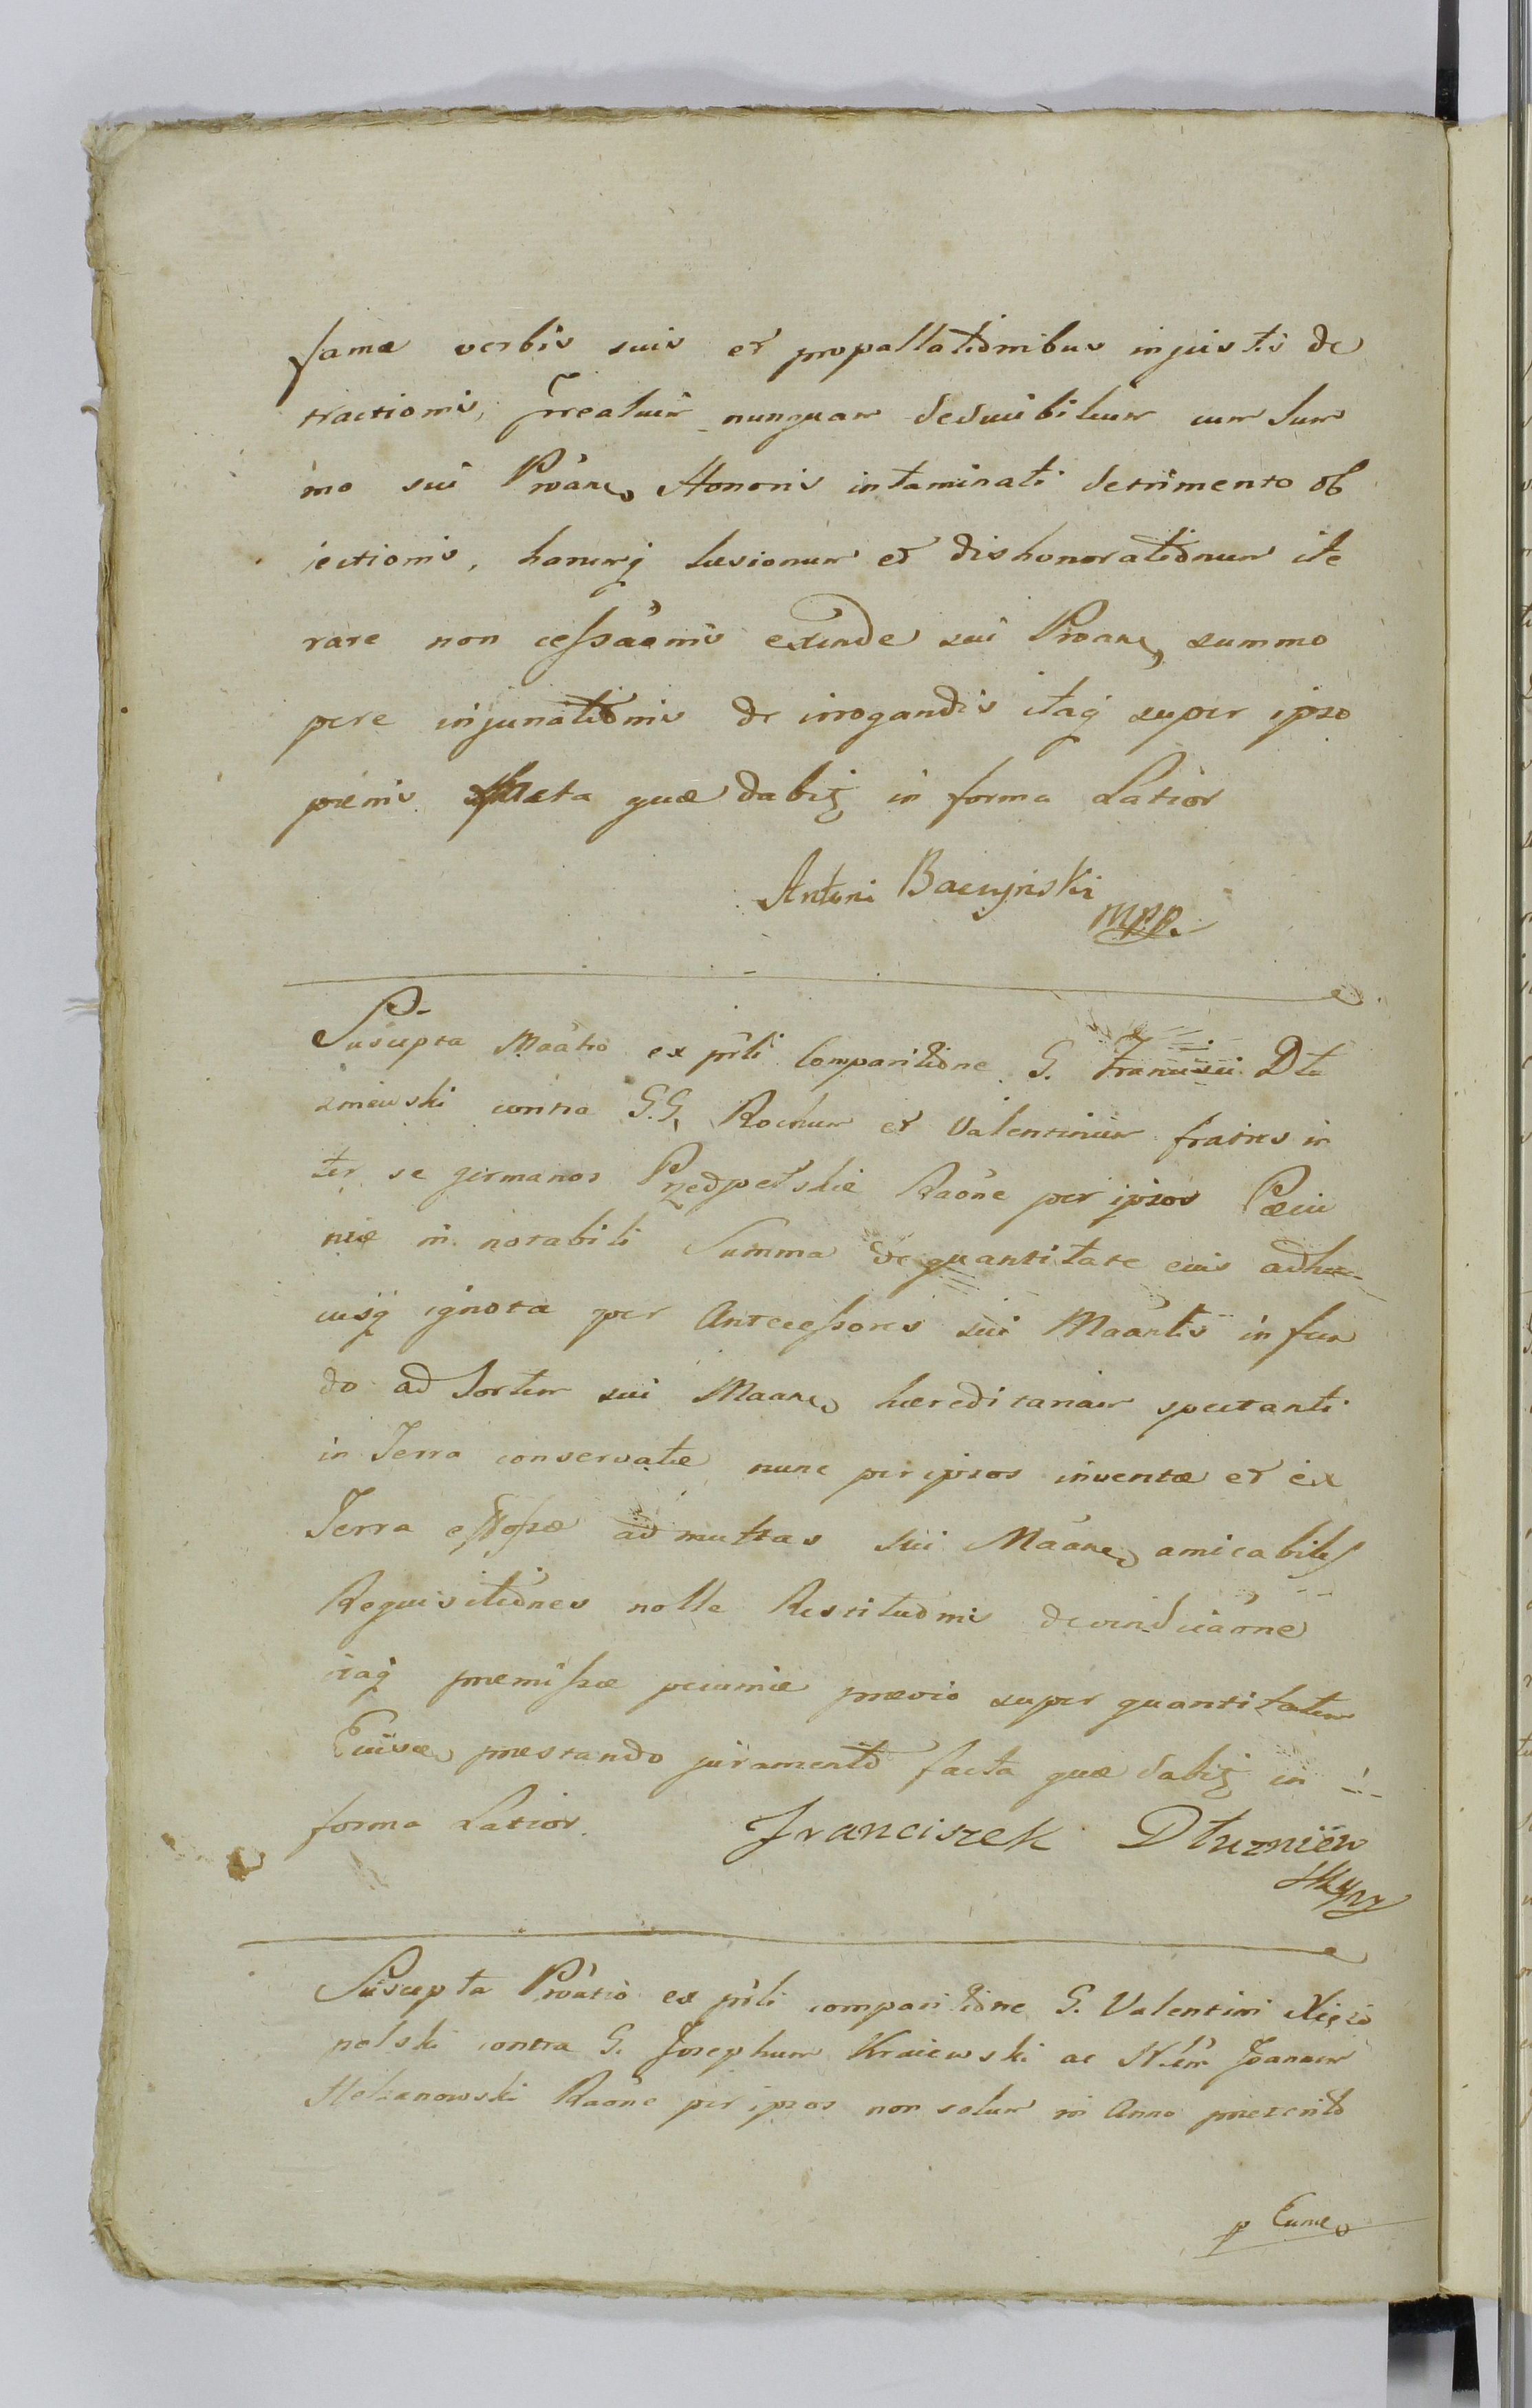 famæ verbis suis et propallationibus injustis de
tractionis, Creatum nunquam deducibilium cum sum
mo sui Proan͠s Honoris intaminati detrimento ob
iectionis, harumq̃ læsionum et dishonorationum ite
rare non cessãonis exinde sui Proan͠s summo
pere injuriationis de irrogandis itaq̃ super ipso
pœnis facta quæ dabit͠ in forma Latior
Antoni Baczyński
mpp.
Suscepta Maãtio ex pñli Comparitione G. Francisci Dłu
zniewski contra G.G. Rochum et Valentinum fratres in
ter se germanos Przedpełskie Raõne per ipsos Pæcu
niæ in notabili Summa de quantitate eius adhu
cusq̃ ignota per Antecessores sui Maãntis in fun
do ad Sortem sui Maan͠s hæreditariam spectanti
in Terra conservatæ nunc per ipsos inventæ et ex
Terra effossæ ad multas sui Maãn͠s amicabiles
Requisitiones nolle Restitu͠onis de vindicãone
itaq̃ præmissæ pecuniæ prævio super quantitatem
Eiusce præstando juramento facta quæ dabit͠ in
forma Latior Franciszek Dłuzniew
sky
Suscepta Proãtio ex pñli comparitione G. Valentini
polski contra G. Josephum Kraiewski ac N. Joanem
Raõne per ipsos non solum in Anno præterito
p Eun͠s